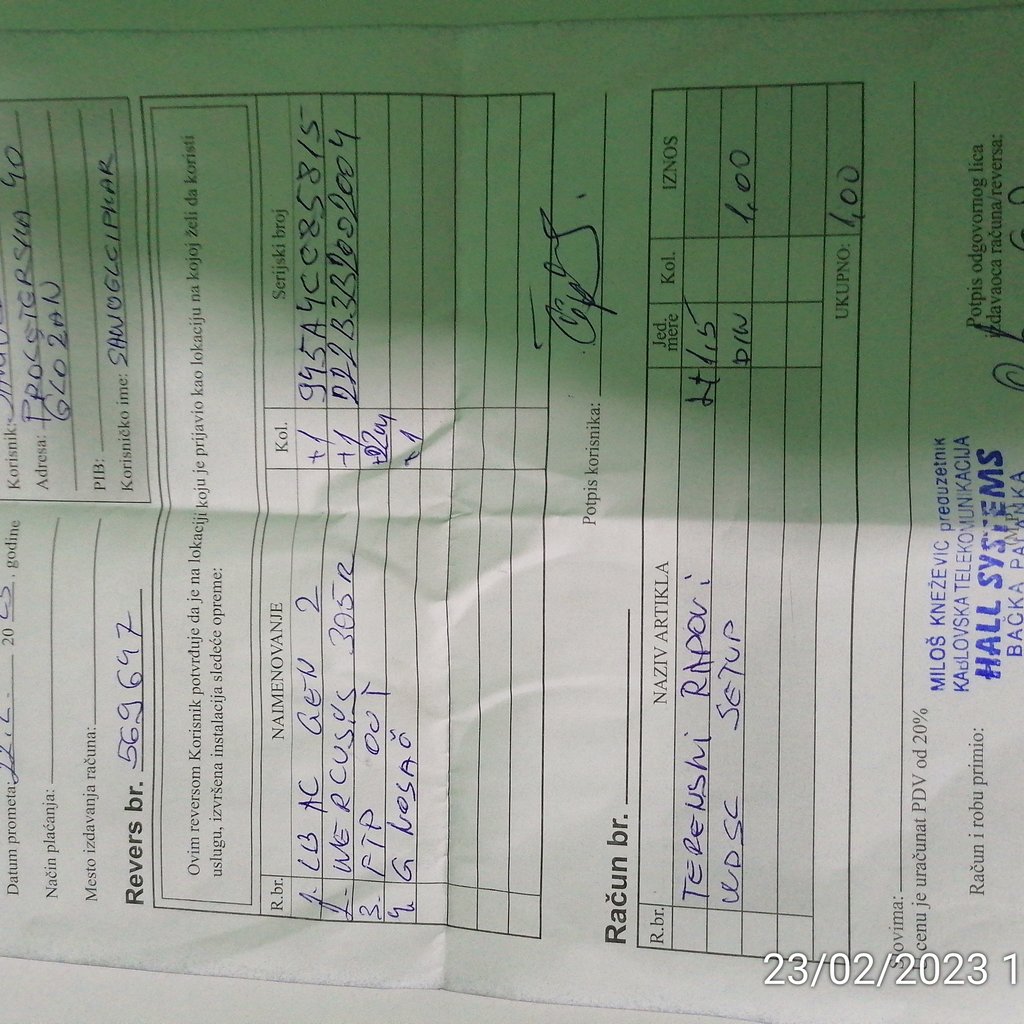 Datum prometa: 22.2. 20 23 . godine
Način plaćanja:
Mesto izdavanja računa:
Revers br. 569647
Korisnik:
Adresa: PROLETERSKA 40
GLOŽAN
PIB:
Korisničko ime: SANOGLCIPKAR
Ovim reversom Korisnik potvrđuje da je na lokaciji koju je prijavio kao lokaciju na kojoj želi da koristi
uslugu, izvršena instalacija sledeće opreme:
R.br. NAIMENOVANJE Kol. Serijski broj
1. LB AC GEN 2 +1 945A4CC85815
2. MERCUSYS 305R +1
3. FTP OUT
4. G NOSAČ +1
Potpis korisnika:
Račun br.
R.br. NAZIV ARTIKLA Jed mere Kol. IZNOS
TERENSKI RADOVI 1,5
WDSL SETUP DIN 1,00
UKUPNO: 1,00
Slovima:
U cenu je uračunat PDV od 20%
Račun i robu primio:
MILOŠ KNEŽEVIĆ preduzetnik
KABLOVSKA TELEKOMUNIKACIJA
HALL SYSTEMS
BAČKA PALANKA
Potpis odgovornog lica
izdavaoca računa/reversa:
23/02/2023 1